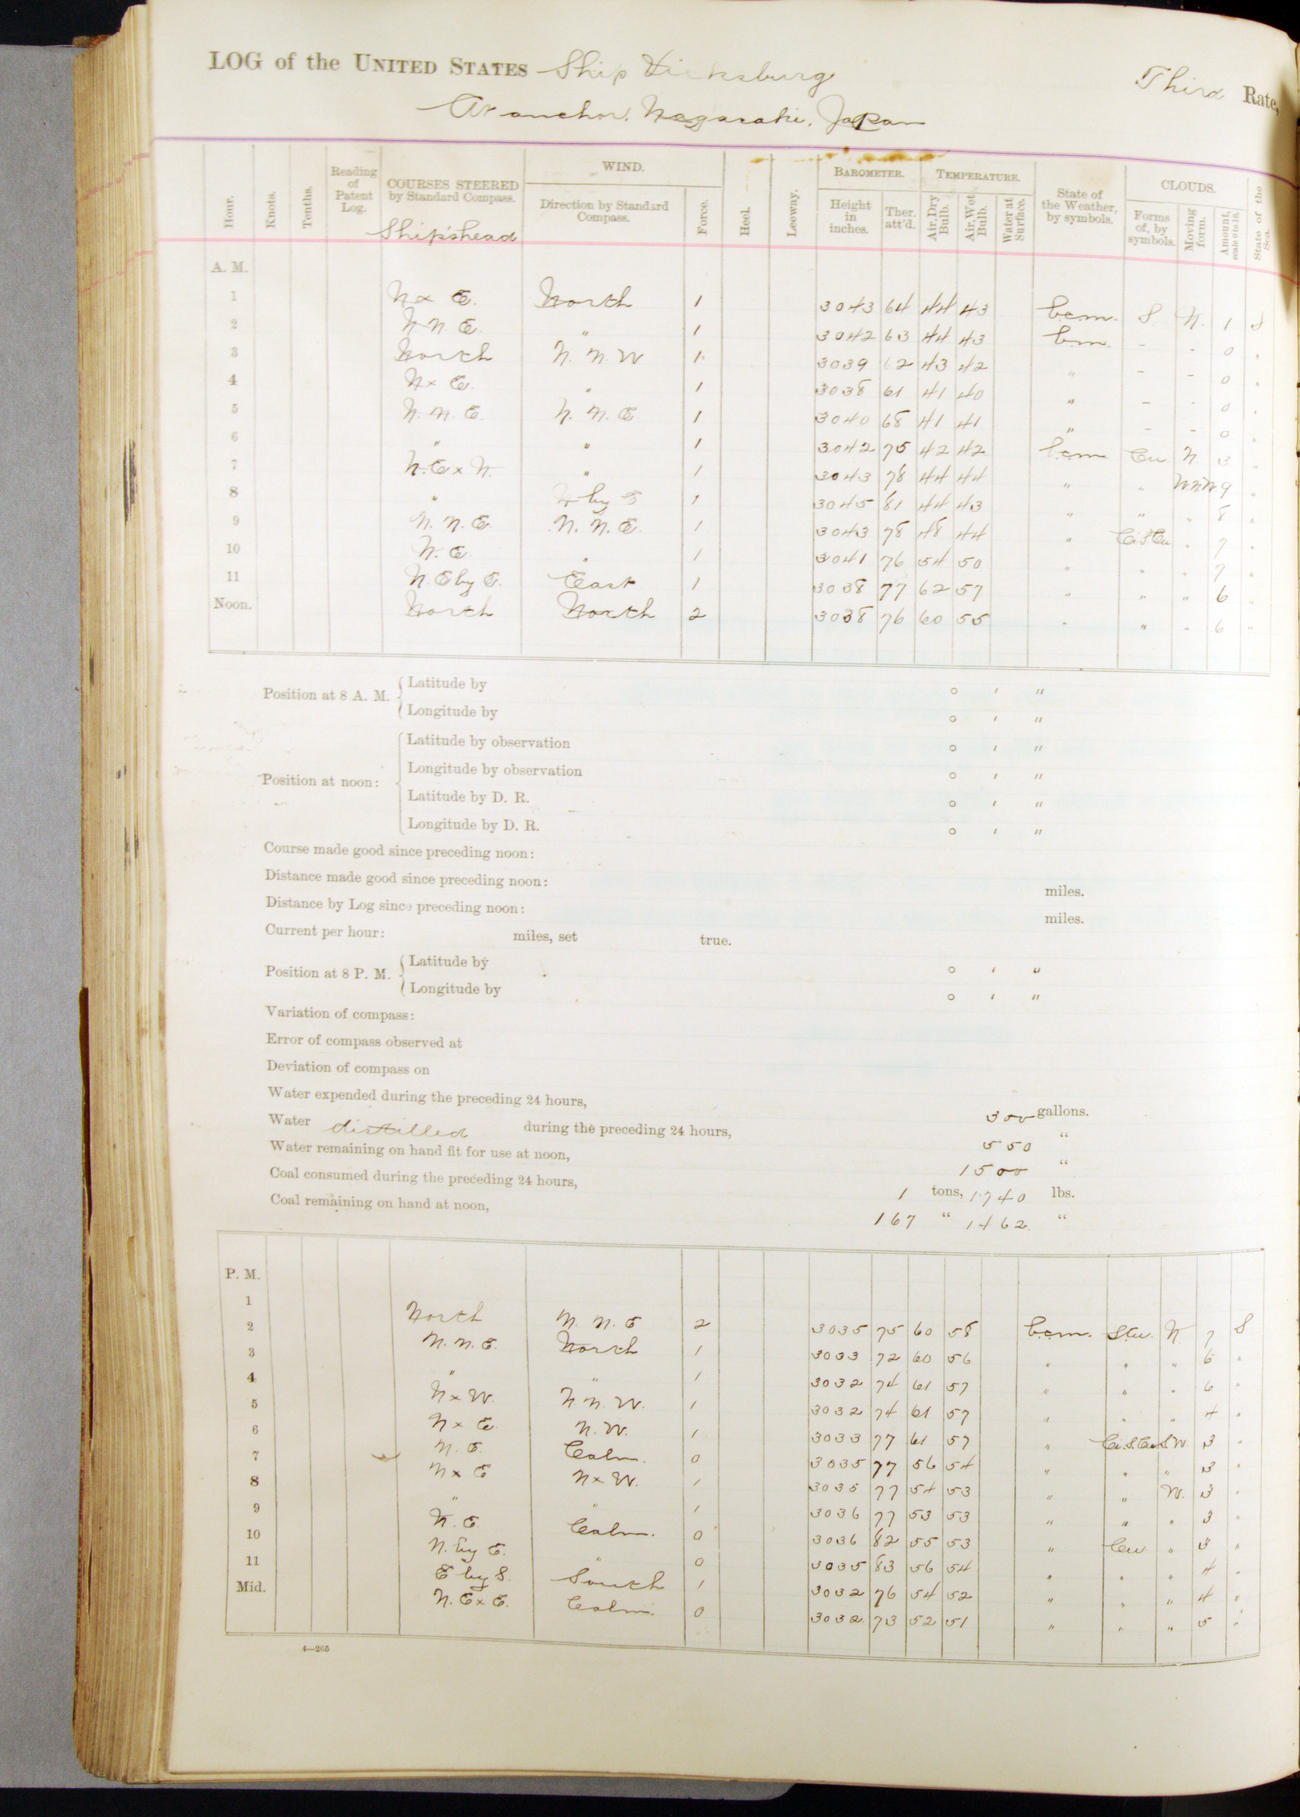 LOG of the UNITED STATES Ship Vicksburg Third Rate,
At anchor, Nagasaki, Japan
Hour. Knots. Tenths. Reading of Patent Log. COURSES STEERED by Standard Compass. WIND. Direction by Standard Compass. Force. Heel. Leeway. BAROMETER. Height in inches. Ther. att'd. TEMPERATURE. Air, Dry Bulb. Air, Wet Bulb. Water at Surface. State of the Weather, by symbols. CLOUDS. Forms of, by symbols. Moving form. Amount, scale 0 to 10. State of the Sea.
Ship's head
A. M.
1 N x E. North 1 3043 64 44 43 bcm. S. N. 1 S
2 N N E. " 1 3042 63 44 43 bm. - - 0 "
3 North N. N. W 1 3039 62 43 42 " - - 0 "
4 N x E. " 1 3038 61 41 40 " - - 0 "
5 N. N. E. N. N. E. 1 3040 68 41 41 " - - 0 "
6 " " 1 3042 75 42 42 bcm Cu N 3 "
7 N. E x N. " 1 3043 78 44 44 " " NNW 9 "
8 " N by E 1 3045 81 44 43 " " " 8 "
9 N. N. E. N. N. E. 1 3043 78 48 44 " Ci.S.Cu " 7 "
10 N. E. " 1 3041 76 54 50 " " " 7 "
11 N. E by E. East 1 3038 77 62 57 " " " 6 "
Noon. North North 2 3038 76 60 55 " " " 6 "
Position at 8 A. M. Latitude by ° ' "
Longitude by ° ' "
Position at noon: Latitude by observation ° ' "
Longitude by observation ° ' "
Latitude by D. R. ° ' "
Longitude by D. R. ° ' "
Course made good since preceding noon:
Distance made good since preceding noon: miles.
Distance by Log since preceding noon: miles.
Current per hour: miles, set true.
Position at 8 P. M. Latitude by ° ' "
Longitude by ° ' "
Variation of compass:
Error of compass observed at
Deviation of compass on
Water expended during the preceding 24 hours, 300 gallons.
Water distilled during the preceding 24 hours, 550 "
Water remaining on hand fit for use at noon, 1500 "
Coal consumed during the preceding 24 hours, 1 tons, 1740 lbs.
Coal remaining on hand at noon, 167 " 1462 "
P. M.
1 North N. N. E 2 3035 75 60 58 bcm. S.Cu. N 7 S
2 N. N. E. North 1 3033 72 60 56 " " " 6 "
3 " " 1 3032 74 61 57 " " " 6 "
4 N x W. N. N. W. 1 3032 74 61 57 " " " 4 "
5 N x E. N. W. 1 3033 77 61 57 " Ci.S.Cu S.W. 3 "
6 N. E. Calm. 0 3035 77 56 54 " " " 3 "
7 N x E N x W. 1 3035 77 54 53 " " W. 3 "
8 " " 1 3036 77 53 53 " " " 3 "
9 N. E. Calm. 0 3036 82 55 53 " Cu " 3 "
10 N. by E. " 0 3035 83 56 54 " " " 4 "
11 E by S. South 1 3032 76 54 52 " " " 4 "
Mid. N. E x E. Calm. 0 3032 73 52 51 " " " 5 "
4—265